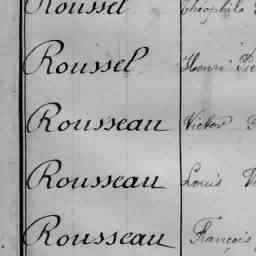 Roussel Théophile
Roussel Henri
Rousseau Victor
Rousseau Louis
Rousseau François